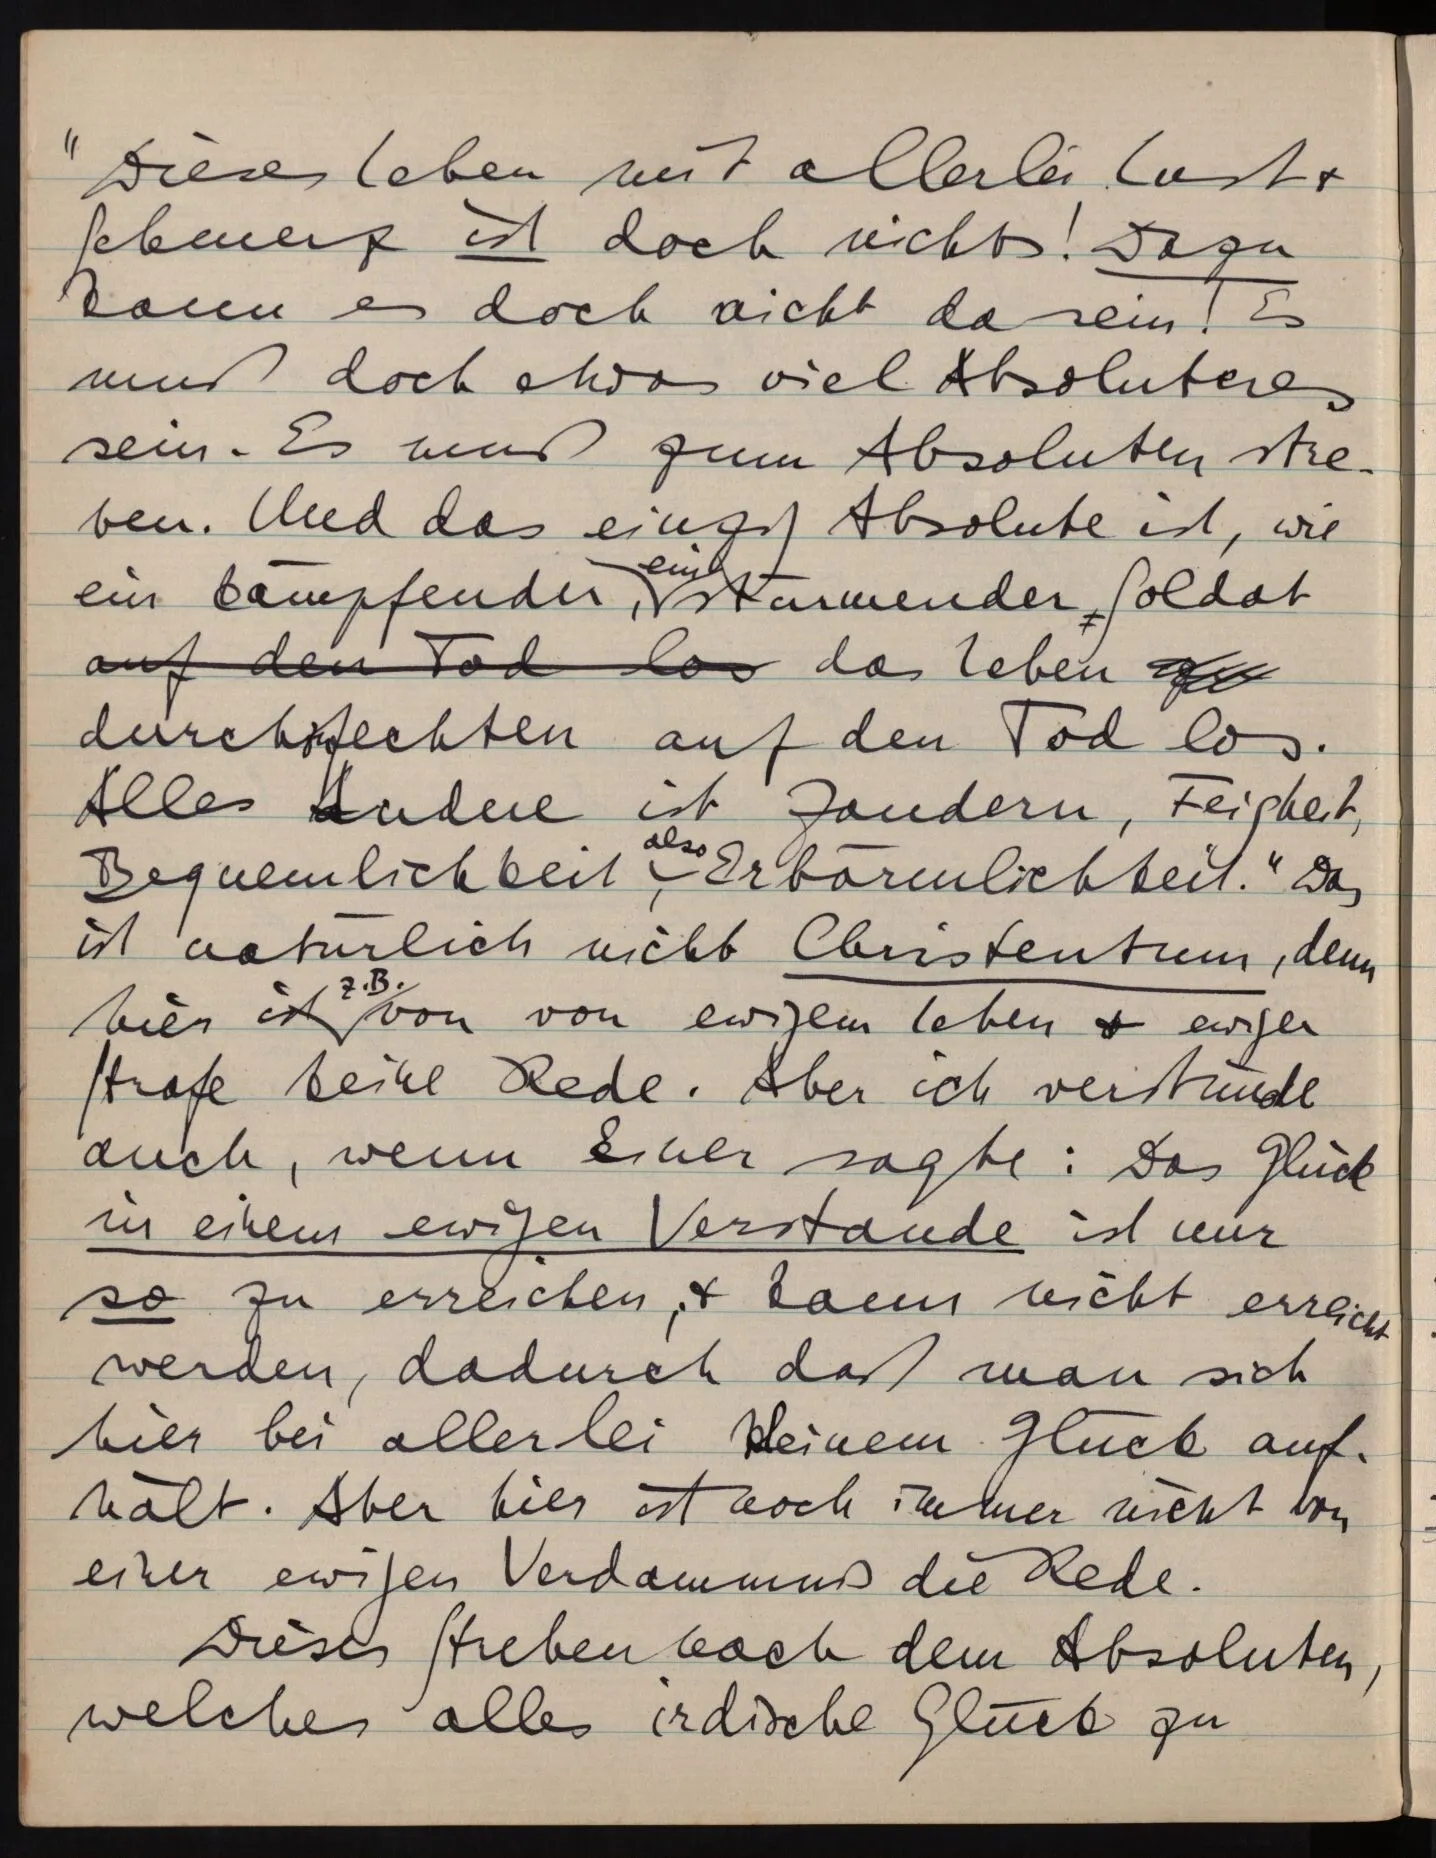 "Dieses Leben mit allerlei Lust +
Schmerz ist doch nichts! Dazu
kann es doch nicht da sein! Es
muß doch etwas viel Absoluteres
sein. Es muß zum Absoluten stre-
ben. Und das einzige Absolute ist, wie
ein kämpfender, ein stürmender, Soldat
auf den Tod los das Leben
durchfechten auf den Tod los.
Alles Andere ist Zaudern, Feigheit,
Bequemlichkeit, also Erbärmlichkeit." Das
ist natürlich nicht Christentum, denn
hier ist z.B. von von ewigem Leben + ewiger
Strafe keine Rede. Aber ich verstünde
auch, wenn Einer sagte: Das Glück
in einem ewigen Verstande ist nur
so zu erreichen, + kann nicht erreicht
werden, dadurch daß man sich
hier bei allerlei kleinem Glück auf-
hält. Aber hier ist noch immer nicht von
einer ewigen Verdammnis die Rede.
Dieses Streben nach dem Absoluten,
welches alles irdische Glück zu